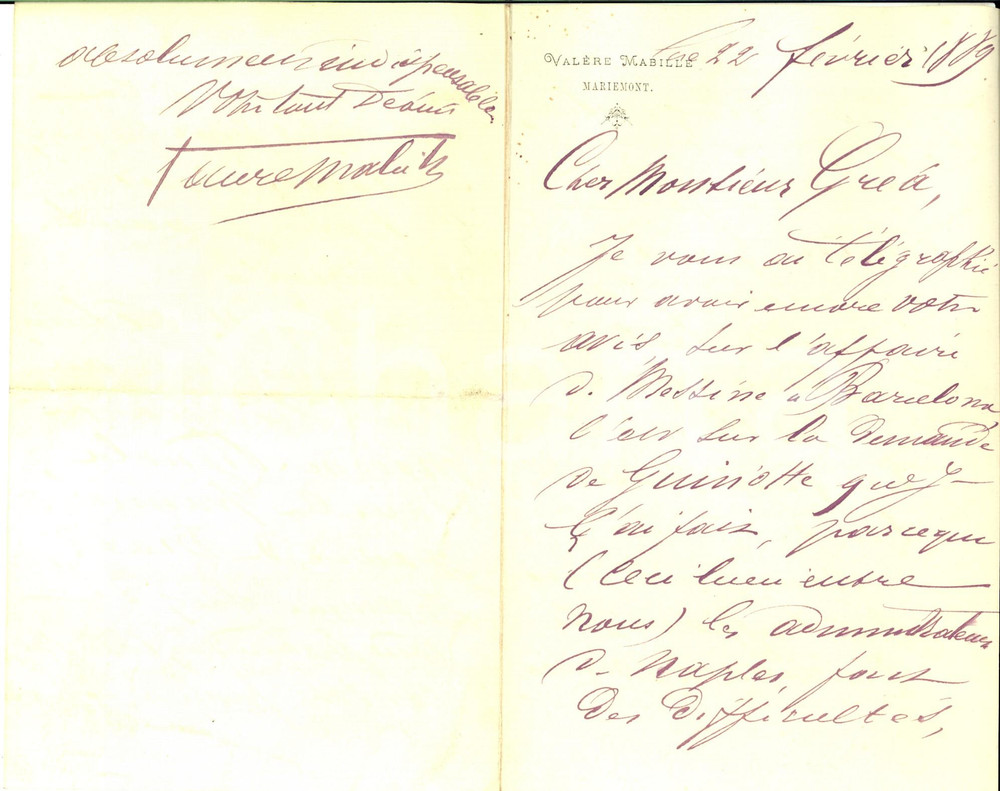 VALÈRE MABILLE
MARIEMONT.
le 22 février 1889
Cher Monsieur Gréa,
Je vous ai télégraphié
pour avoir encore votre
avis, sur l'affaire
de Messine à Barcelona,
c'est sur la demande
de Guinotte que je
l'ai fait, parceque
(ceci bien entre
nous) les administrateurs
de Naples, font
des difficultés,
absolument indispensable
Votre tout dévoué
Valère Mabille